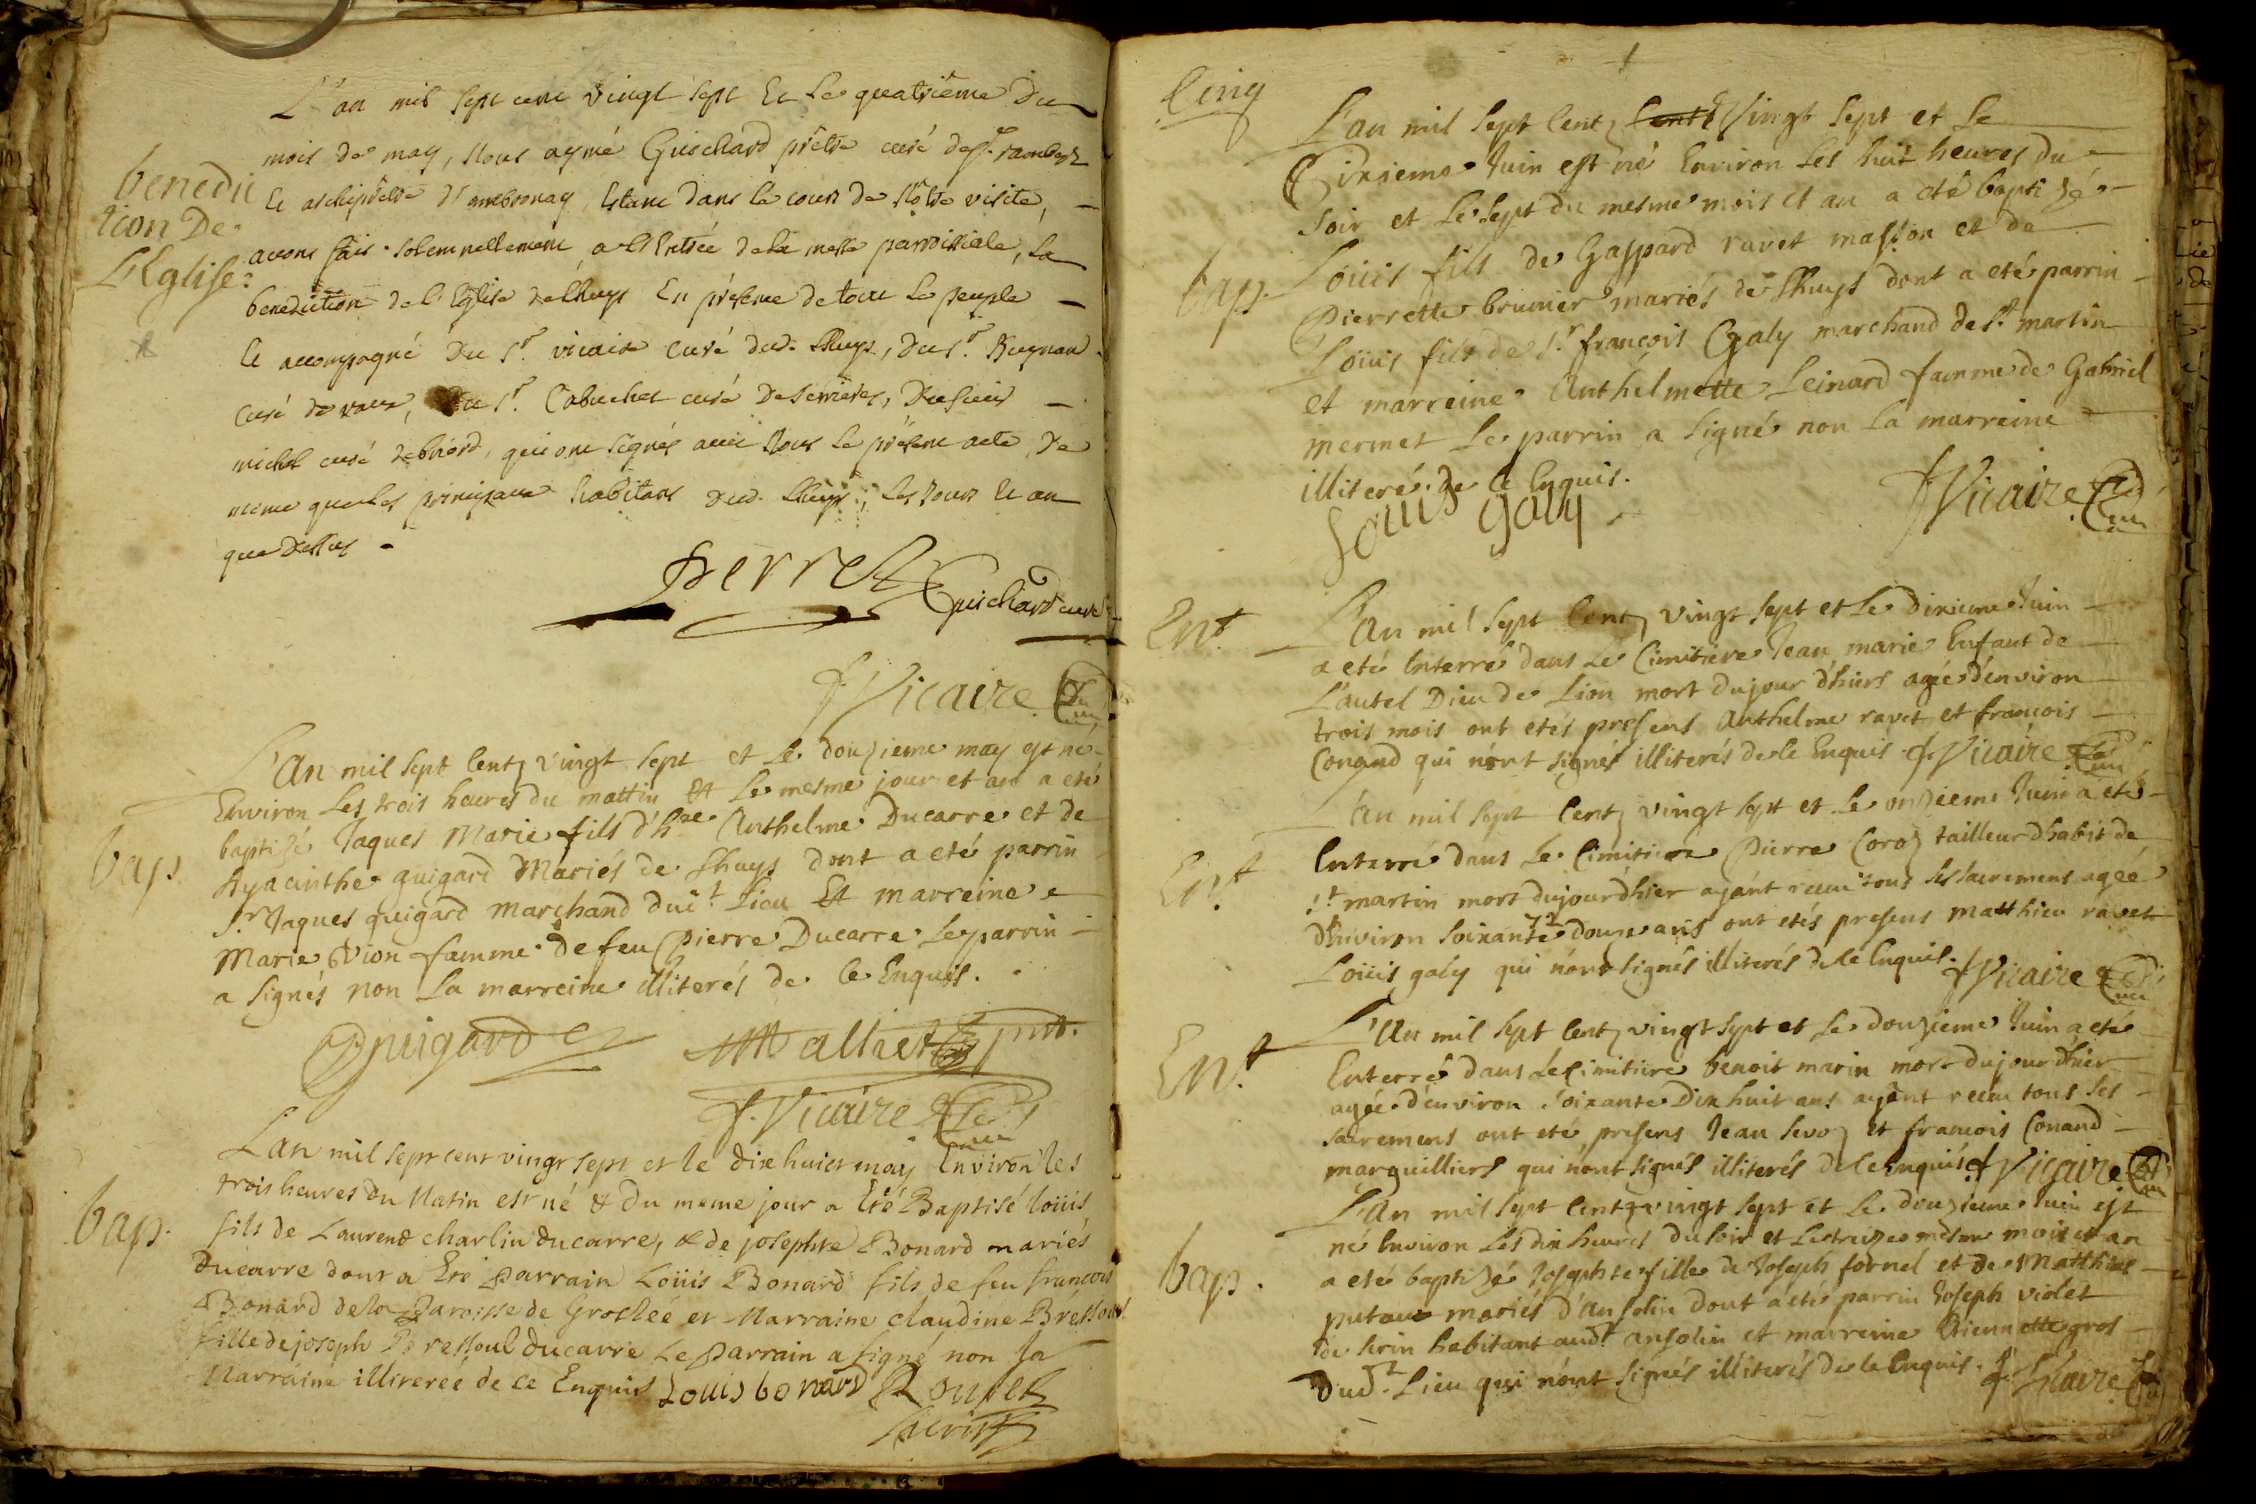 L'an mil sept cent vingt sept Et Le quatrième Du
mois de may, Nous aymé Guichard prêtre curé de st. rambert
benedic
Et archiprêtre d'ambronay Estant dans le cours de Nôtre visite,
tion De
avons fait solemnellement a l'Entrée de la messe parroissiale, La
L'Eglise:
benediction de l'Eglise de Lhuys En présence de tout Le peuple
Et accompagné Du Sr. vicaire curé dud. Lhuys, Du Sr.
curé de vaux, Du Sr. Cabuchet curé De Serrieres, Du sieur
michel curé de briord, qui ont signés avec Nous Le présent acte, De
meme que Les principaux habitans dud. Lhuys, Les Jour Et an
que Dessus
perret Guichard curé
f Vicaire
L'An mil sept Centz vingt sept et Le douzieme may est né
Environ Les trois heures du mattin et Le mesme jour et an a eté
bap
baptizé Jaques Marie fils d'hre Anthelme Ducarre et de
hyacinthe guigard Mariés de Lhuys dont a eté parrin
Sr Jaques guigard marchand dud.t Lieu Et marreine
Marie Vion famme de feu Pierre Ducarre Le parrin
a signés non La marreine illiterés de Ce Enquis.
Guigard Mallret pnt.
f. Vicaire
L'an mil sept cent vingt sept et le dix huict may Environ les
trois heures du Matin est né & du meme jour a Eté Baptisé loüis
bap.
fils de Laurend charlin ducarre, & de josephte Bonard mariés
ducarre dont a Eté Parrain Loüis Bonard fils de feu francois
Bonard de la Paroisse de Groslée et Marraine claudine Bressoul
fille de joseph Bressoul ducarre Le Parrain a signé non la
Marraine illiterée de ce Enquis Louis bonard
Cinq
L'an mil sept Centz Centz Vingt sept et Le
Sixieme Juin est né Environ Les huit heures du
soir et Le sept du mesme mois et an a eté baptizé
bap.
Loüis fils de Gaspard ravet masson et de
Pierrette brunier mariés de Lhuys dont a eté parrin
Loüis fils de Sr. françois Galy marchand de st. martin
et marreine Anthelmette Leinard famme de Gabriel
mermet Le parrin a signé non la marreine
illiteré de Ce Enquis.
f Vicaire
Louis galy
Ent.
L'an mil sept Centz vingt sept et Le dixieme Juin
a eté Enterré dans Le Cimitiere Jean marie Enfant de
L'autel Dieu de Lion mort du jour d'hiers agée d'environ
trois mois ont etés presens Anthelme ravet et francois
Conand qui n'ont signés illiterés de Ce Enquis f. Vicaire
L'an mil sept Centz vingt sept et Le onzieme Juin a eté
Ent.
Enterré dans Le Cimitiere Pierre Coroz tailleur d'habit de
st martin mort du jour d'hier ayant receu tous ses sacremens agée
72
d'Environ soixante douze ans ont etés presens Matthieu ravet
Loüis galy qui n'ont signés illiterés de Ce Enquis. f Vicaire
L'An mil sept Centz vingt sept et Le douzieme Juin a eté
Ent.
Enterré dans Le Cimitiere benoit marin mort du jour d'hier
agée d'environ soixante Dix huit ans ayant receu tous ses
sacremens ont eté presens Jean Sevoz et francois Conand
marguilliers qui n'ont signés illiterés de Ce Enquis f Vicaire
L'An mil sept Centz vingt sept et Le douzieme Juin est
né Environ Les dix heures du soir et Le treize mesme mois et an
bap.
a eté baptizé Josephte fille de Joseph fornel et de Matthiae
putoux mariés d'ansolin dont a eté parrin Joseph violet
de sirin habitant aud.t ansolin et marreine Etiennette gros
Dud.t Lieu qui n'ont signés illiterés de Ce Enquis. f. Vicaire